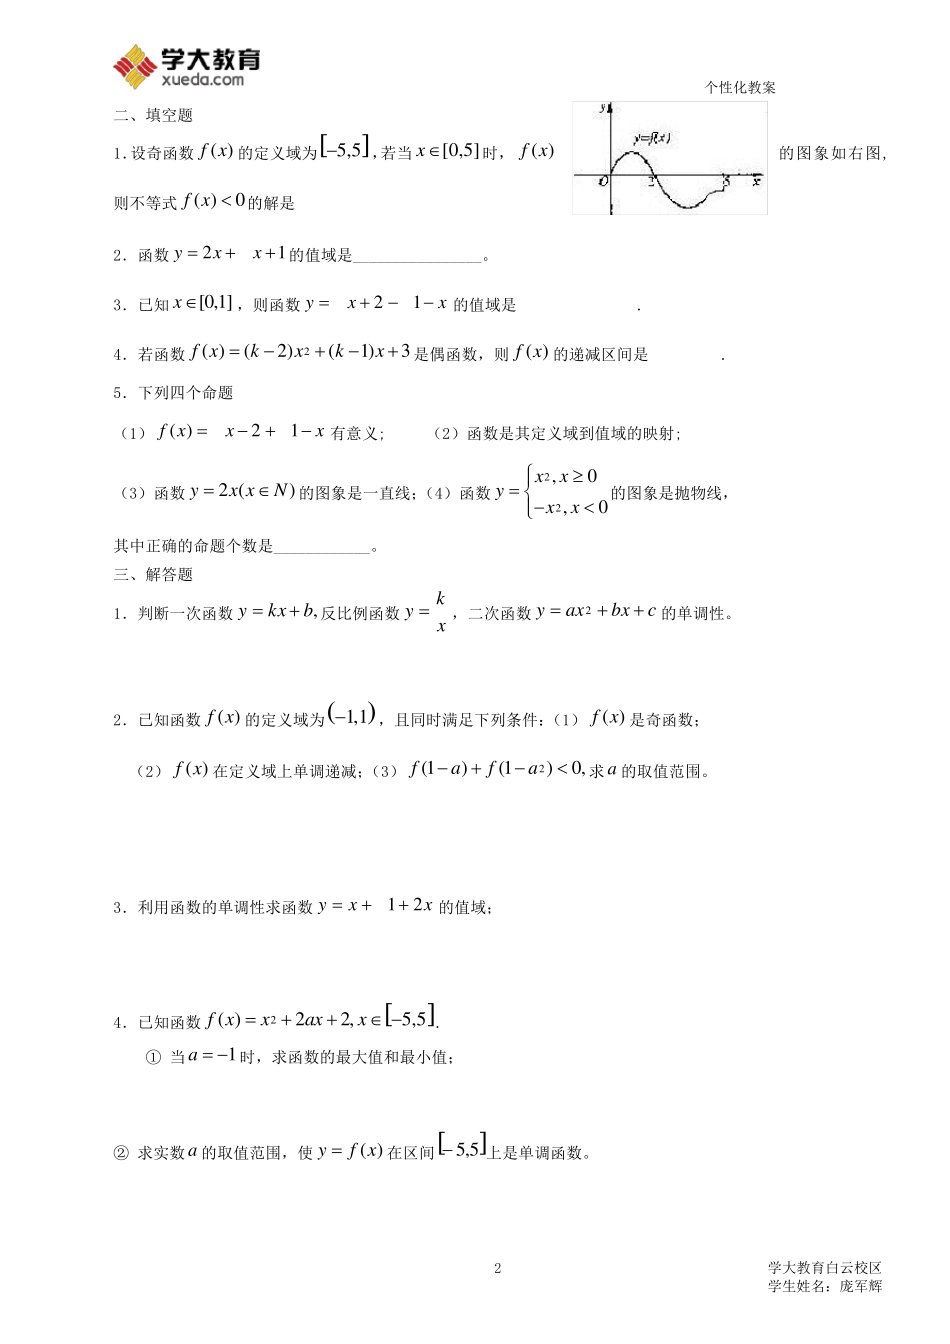 学大教育
xueda.com
个性化教案
二、填空题
1.设奇函数 f(x) 的定义域为[-5,5],若当 x∈[0,5]时, f(x) 的图象如右图,
y
y=f(x)
O 2 5 x
则不等式 f(x)<0的解是
2．函数 y=2x+ x+1的值域是________________。
3．已知 x∈[0,1]，则函数 y= x+2− 1−x 的值域是 .
4．若函数 f(x)=(k−2)x2+(k−1)x+3是偶函数，则 f(x) 的递减区间是 .
5．下列四个命题
（1） f(x)= x−2+ 1−x 有意义; （2）函数是其定义域到值域的映射;
（3）函数 y=2x(x∈N) 的图象是一直线；（4）函数 y={x2,x≥0 −x2,x<0 的图象是抛物线，
其中正确的命题个数是____________。
三、解答题
1．判断一次函数 y=kx+b,反比例函数 y=k/x ，二次函数 y=ax2+bx+c 的单调性。
2．已知函数 f(x) 的定义域为(−1,1)，且同时满足下列条件：（1） f(x) 是奇函数；
（2） f(x) 在定义域上单调递减；（3） f(1−a)+f(1−a2)<0,求 a 的取值范围。
3．利用函数的单调性求函数 y=x+ 1+2x 的值域；
4．已知函数 f(x)=x2+2ax+2,x∈[−5,5].
① 当 a=−1时，求函数的最大值和最小值；
② 求实数 a 的取值范围，使 y=f(x) 在区间[−5,5]上是单调函数。
2
学大教育白云校区
学生姓名：庞军辉